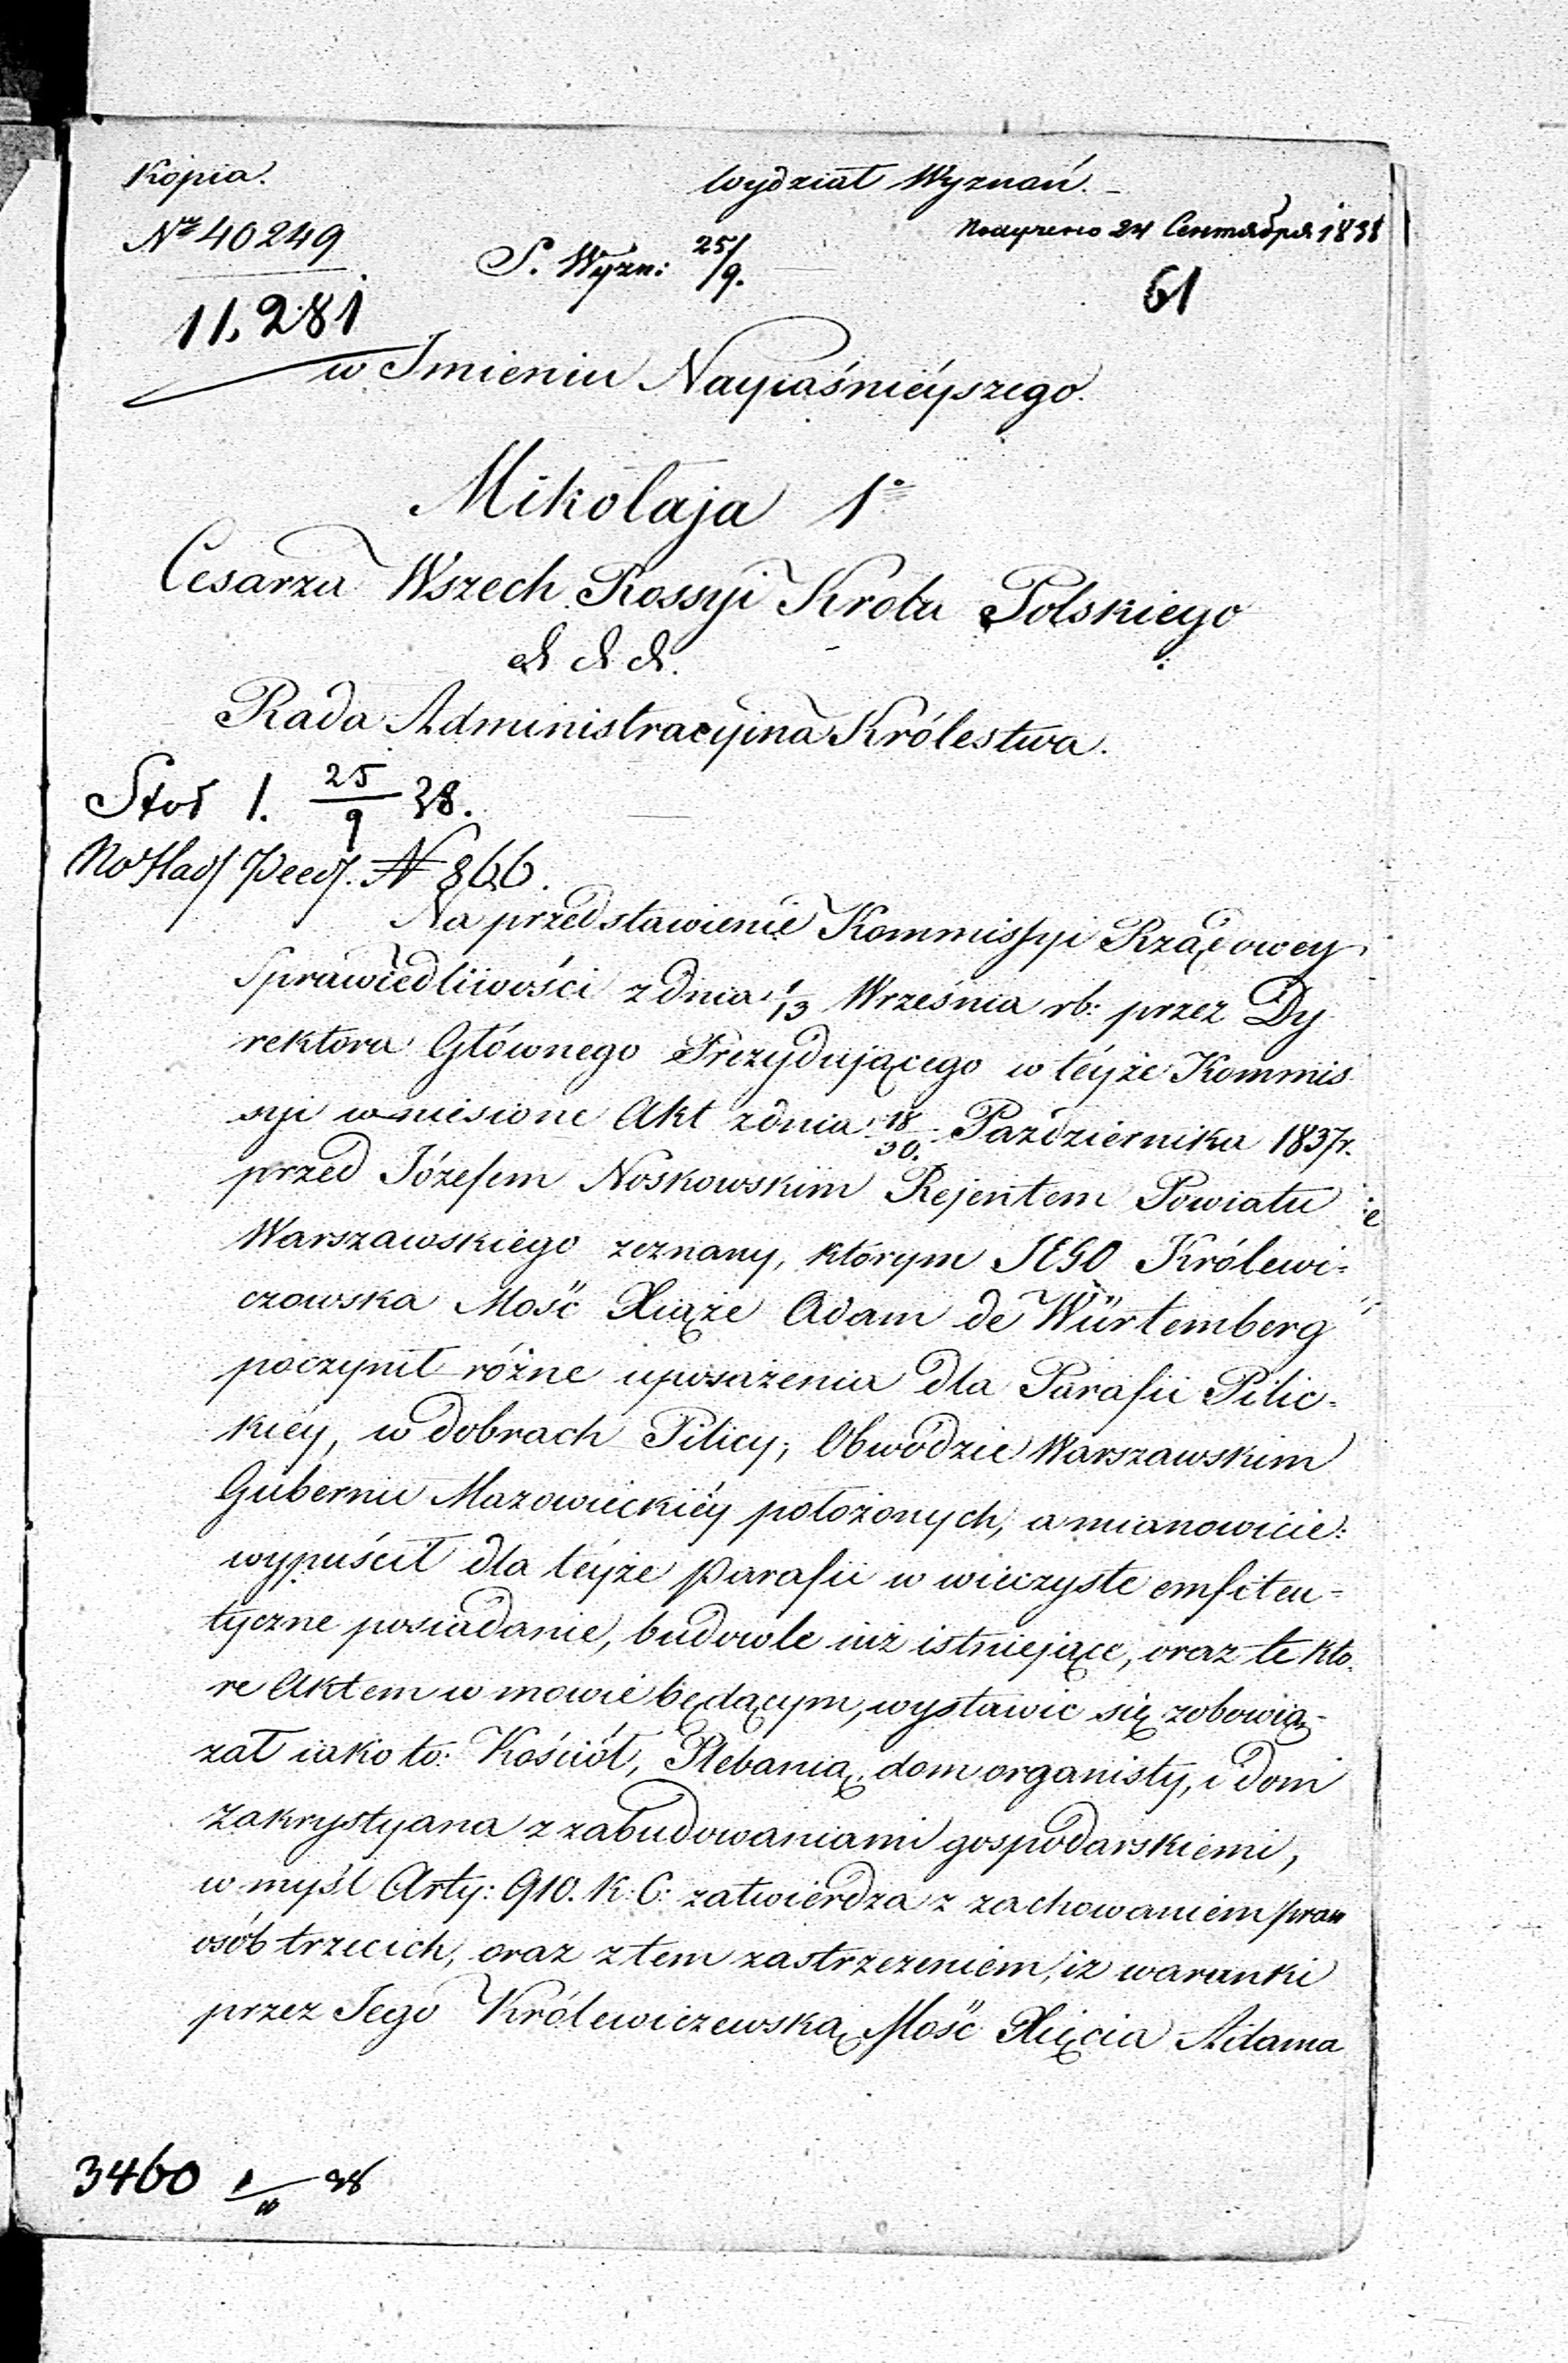 Kopia.
Wydział Wyznań.
Nro 40249
Получено 24 Сентября 1838
S. Wyzn: 25/9.
61
11,281
w Imieniu Nayiaśnieyszego.
Mikołaja 1o
Cesarza Wszech Rossyi Krola Polskiego
& & &.
Rada Administracyina Królestwa.
Stoł 1. 25/9 38.
N 866.
Na przedstawienie Kommissyi Rządowey
Sprawiedliwości z dnia 1/13 Września rb: przez Dy
rektora Głównego Prezydującego w téyże Kommis
syi wniesione Akt z dnia 18/30. Października 1837r.
przed Józefem Noskowskim Rejentem Powiatu
Warszawskiego zeznany, którym JEGO Królewi-
czowska Mość Xiąże Adam de Würtemberg
poczynił różne uposażenia dla Parafii Pilic-
kiéy, w dobrach Pilicy, Obwodzie Warszawskim
Gubernii Mazowieckiéy położonych, a mianowicie:
wypuścił dla téyże Parafii w wieczyste emfiteu-
tyczne posiadanie, budowle iuż istniejące, oraz te kto-
re Aktem w mowie będącym, wystawic się zobowią-
zał iako to: Kościół, Plebanią, dom organisty, i dom
Zakrystyana z zabudowaniami gospodarskiemi,
w myśl Arty: 910. K: C: zatwierdza z zachowaniem praw
osób trzecich, oraz z tem zastrzeżeniem, iż warunki
przez Jego Królewiczewską Mość Xięcia Adama
3460 1/10 38